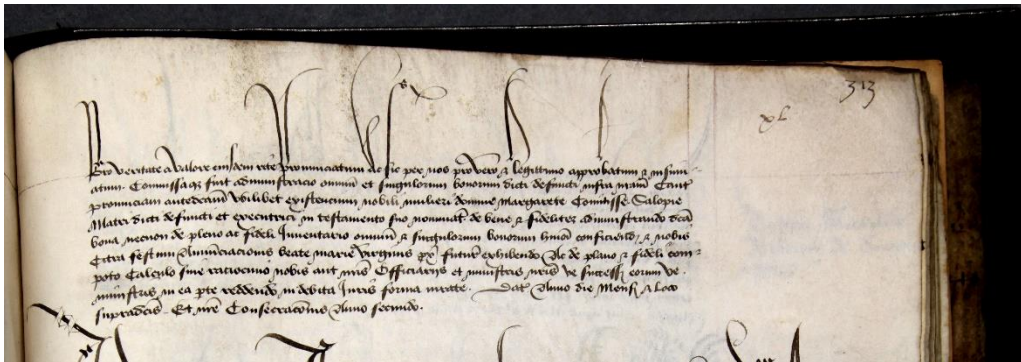 313
xl
Pro veritate et valore eiusdem rite pronunciatum ac sic per nos pro vero et legittimo approbatum et insinu
atum Commissaque fuit administracio omnium et singulorum bonorum dicti defuncti infra nostram Cant
provinciam antedictam ubilibet existencium nobili mulieri domine Margarete Comitisse Salopie
Matri dicti defuncti et executrici in testamento suo nominat de bene et fideliter administrando dicta
bona necnon de pleno ac fideli Inventario omnium et singulorum bonorum huiusmodi conficiendo et nobis
Citra festum Annunciacionis beate marie virginis prox futur exhibendo Ac de plano et fideli com
poto Calculo sive raciocinio nobis aut nostris Officiariis et ministris nostris ve Successor eorum ve
ministris in ea parte reddendo in debita Iuris forma iurate Dat Anno die Mens et Loco
supradictis Et nostre Consecracionis Anno secundo